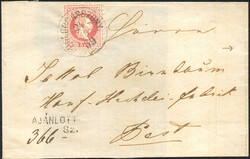 Herrn
Jakob Birnbaum
Hanf-Hechelei-Fabrik
Pest
AJÁNLOTT
Sz.
366